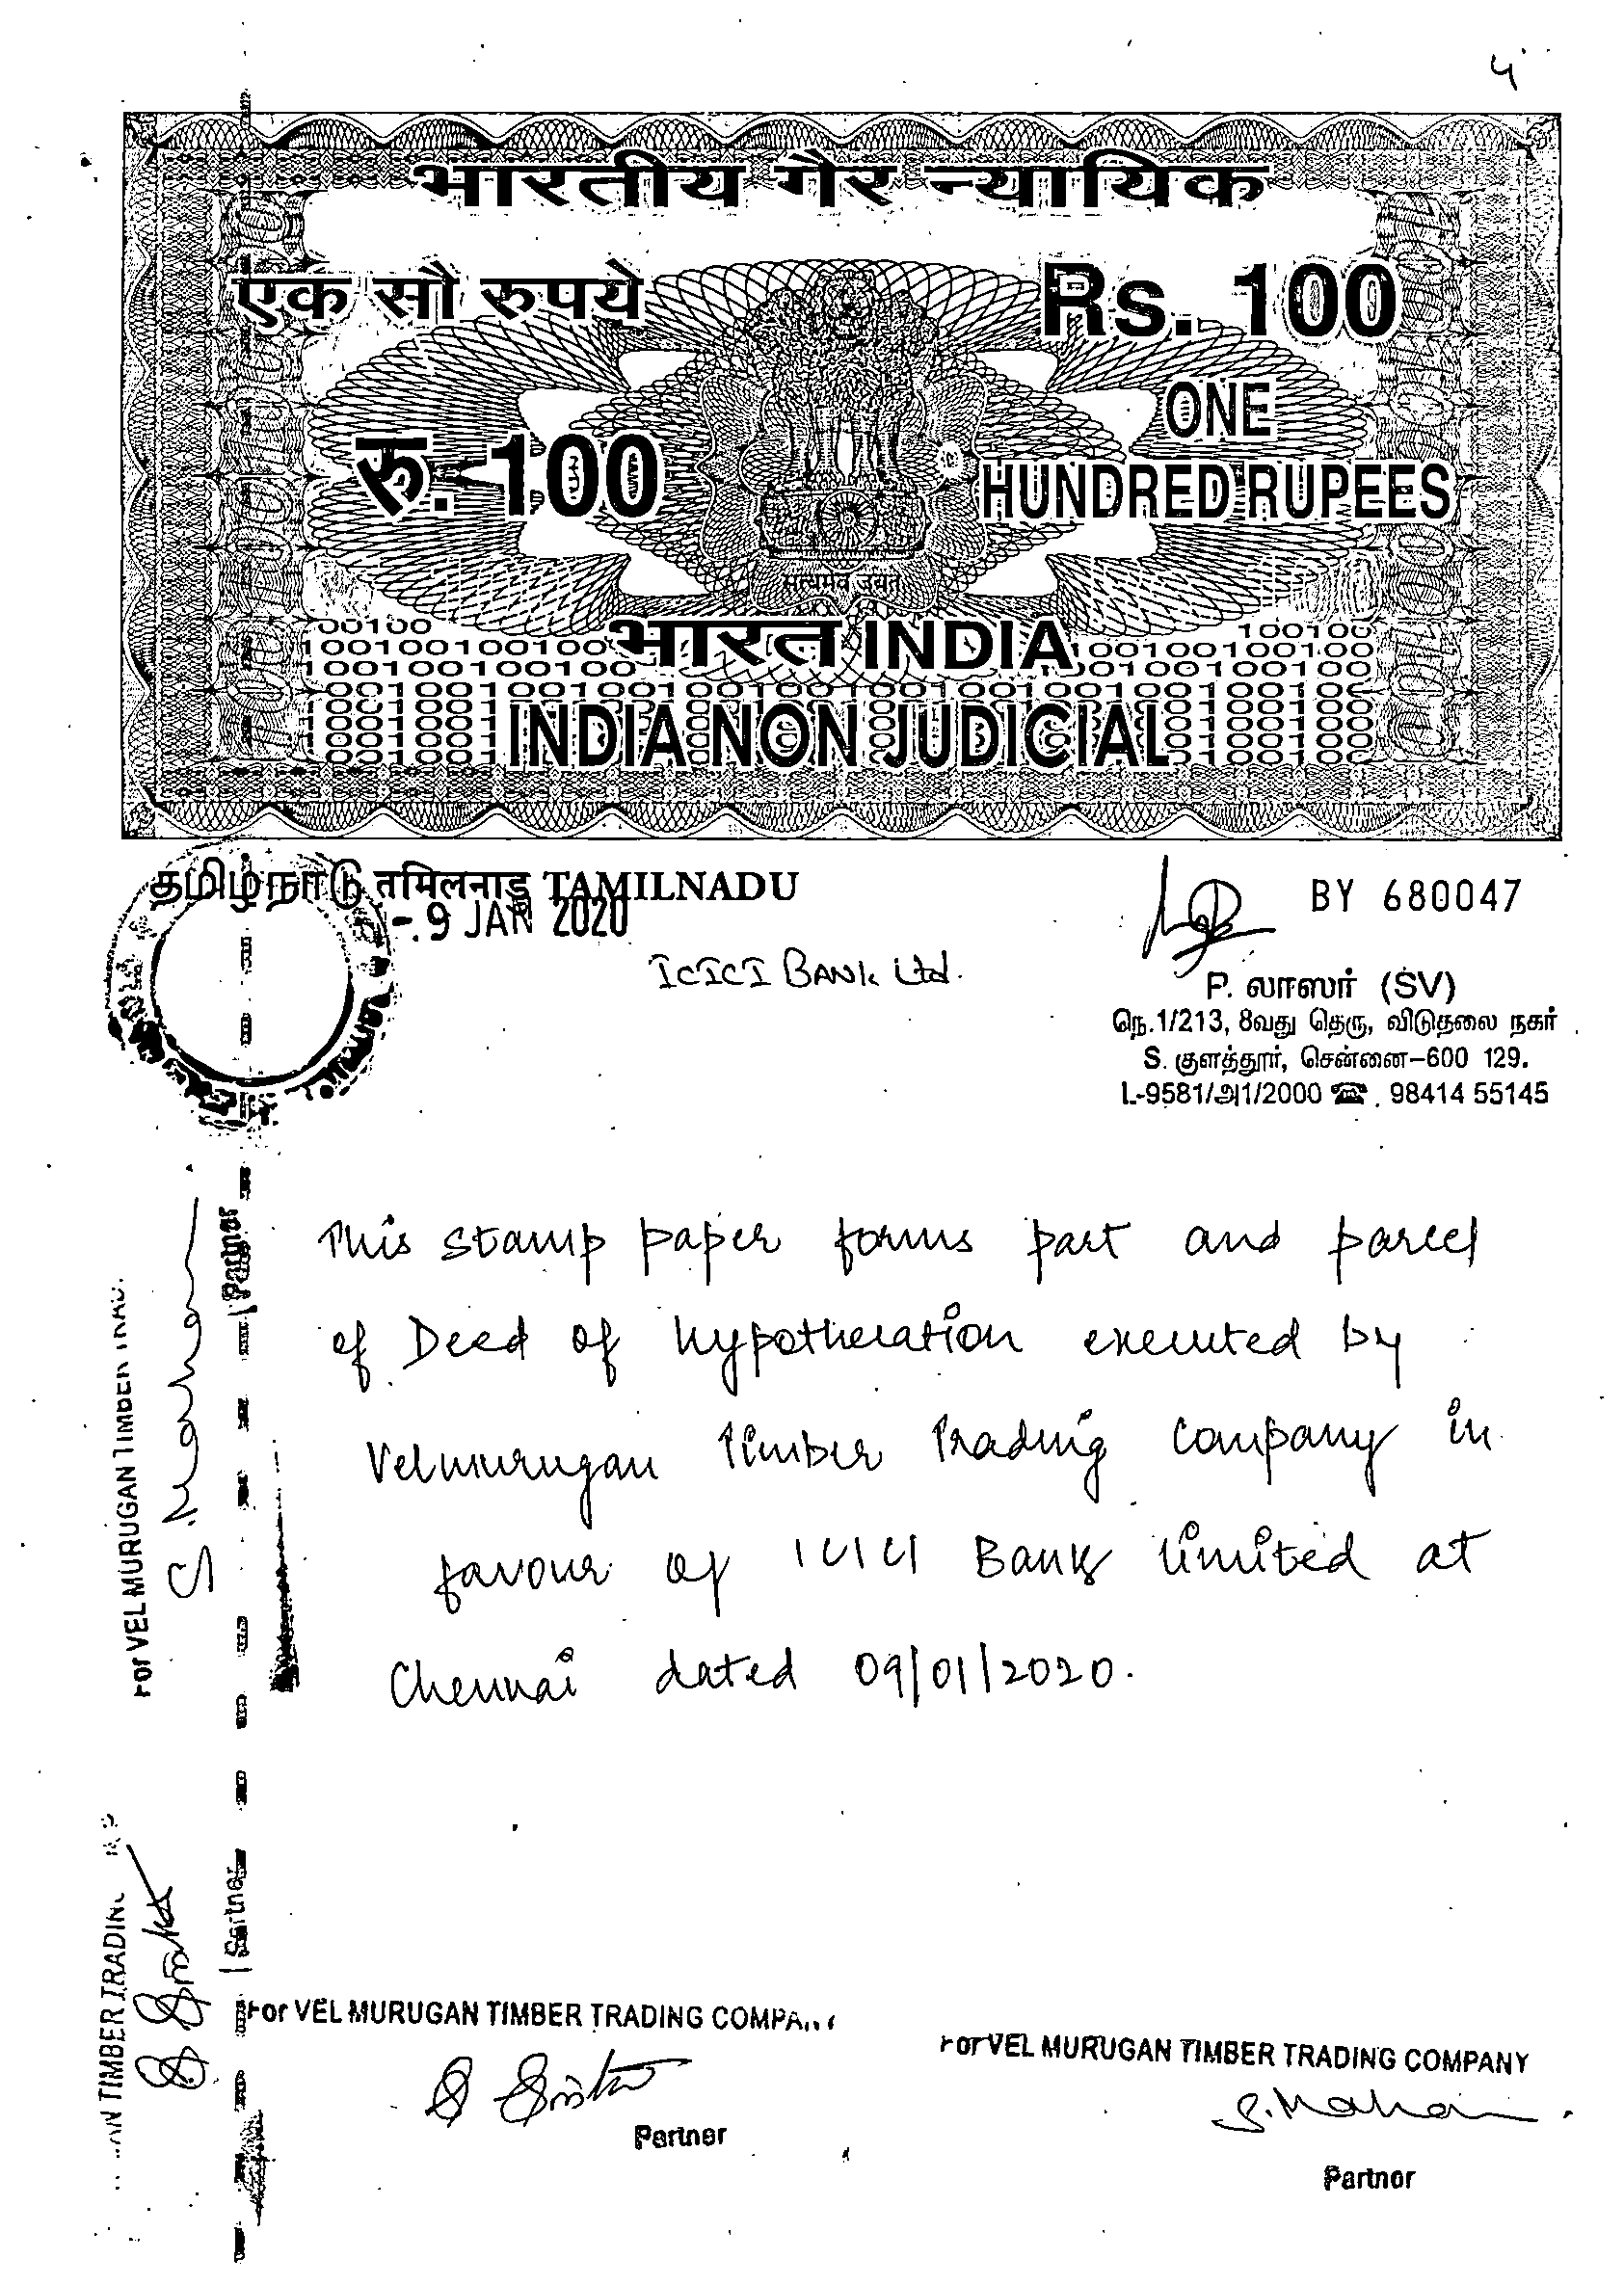 4
भारतीय गैर न्यायिक
एक सौ रुपये
Rs. 100
रु. 100
ONE
HUNDRED RUPEES
सत्यमेव जयते
भारत INDIA
INDIA NON JUDICIAL
தமிழ்நாடு तमिलनाडु TAMILNADU
BY 680047
-9 JAN 2020
ICICI BANK Ltd.
P. லாஸர் (SV)
நெ.1/213, 8வது தெரு, விடுதலை நகர்
S. குளத்தூர், சென்னை-600 129.
L-9581/அ1/2000 ☎ 98414 55145
This stamp paper forms part and parcel
of Deed of hypothecation executed by
Velmurugan Timber Trading Company in
favour of ICICI Bank limited at
Chennai dated 09/01/2020.
For VEL MURUGAN TIMBER
Partner
TIMBER TRADING
Partner
For VEL MURUGAN TIMBER TRADING COMPANY
Partner
For VEL MURUGAN TIMBER TRADING COMPANY
S. Mohan
Partner